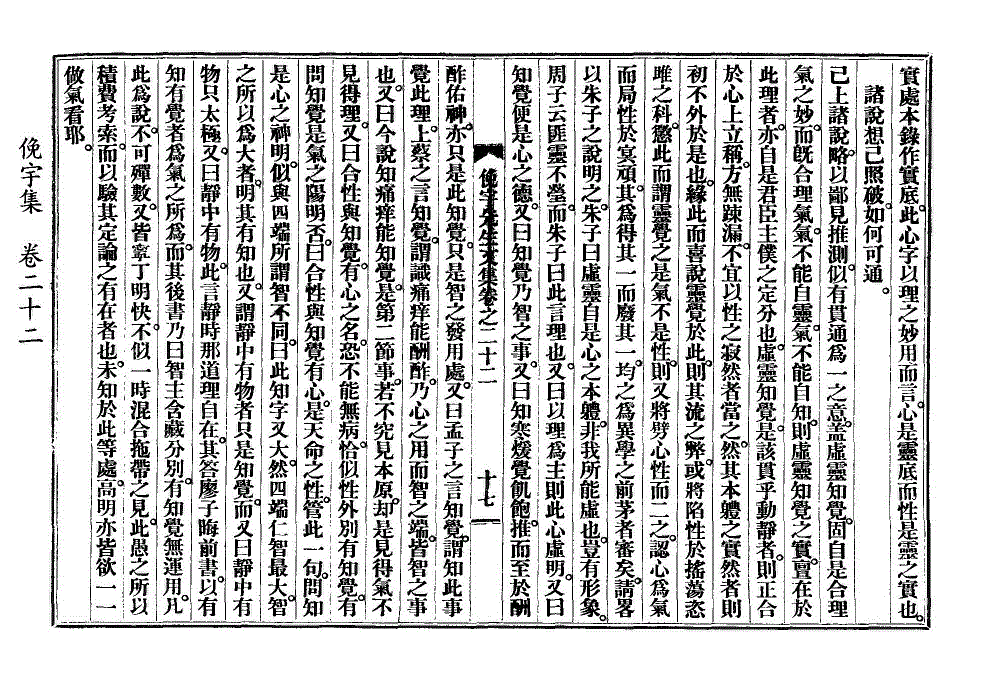 實處本錄作實底。此心字以理之妙用而言。心是靈底而性是靈之實也。
諸說想已照破。如何可通。
已上諸說。略以鄙見推測。似有貫通爲一之意。蓋虛靈知覺。固自是合理
氣之妙。而旣合理氣。氣不能自靈。氣不能自知。則虛靈知覺之實。亶在於
此理者。亦自是君臣主僕之定分也。虛靈知覺。是該貫乎動靜者。則正合
於心上立稱。方無踈漏。不宜以性之寂然者當之。然其本軆之實然者則
初不外於是也。緣此而喜說靈覺於此。則其流之弊。或將陷性於搖蕩恣
雎之科。懲此而謂靈覺之是氣不是性。則又將劈心性而二之。認心爲氣
而局性於冥頑。其爲得其一而廢其一。均之爲異學之前茅者審矣。請畧
以朱子之說明之。朱子曰虛靈自是心之本軆。非我所能虛也。豈有形象。
周子云匪靈不瑩。而朱子曰此言理也。又曰以理爲主則此心虛明。又曰
知覺便是心之德。又曰知覺乃智之事。又曰知寒煖覺飢飽。推而至於酬
俛宇先生文集卷之二十二
十七
酢佑神。亦只是此知覺。只是智之發用處。又曰孟子之言知覺。謂知此事
覺此理。上蔡之言知覺。謂識痛痒能酬酢。乃心之用而智之端。皆智之事
也。又曰今說知痛痒能知覺。是第二節事。若不究見本原。却是見得氣不
見得理。又曰合性與知覺。有心之名。恐不能無病。恰似性外別有知覺。有
問知覺是氣之陽明否。曰合性與知覺有心。是天命之性。管此一句。問知
是心之神明。似與四端所謂智不同。曰此知字又大。然四端仁智最大。智
之所以爲大者。明其有知也。又謂靜中有物者只是知覺。而又曰靜中有
物只太極。又曰靜中有物。此言靜時那道理自在。其答廖子晦前書。以有
知有覺者爲氣之所爲。而其後書乃曰智主含藏分別。有知覺無運用。凡
此爲說。不可殫數。又皆寧丁明快。不似一時混合拖帶之見。此愚之所以
積費考索。而以驗其定論之有在者也。未知於此等處。高明亦皆欲一一
做氣看耶。
俛宇集　卷二十二